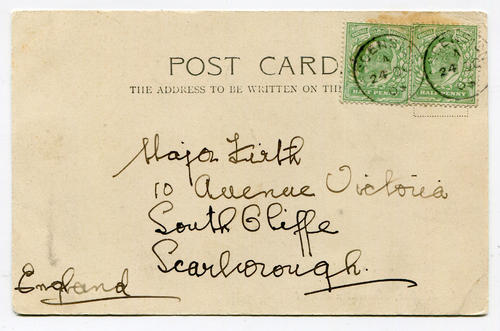 POST CARD
THE ADDRESS TO BE WRITTEN ON TH
HALF PENNY
HALF PENNY
24
24
Major Firth
10 Avenue Victoria
South Cliffe
Scarborough.
England